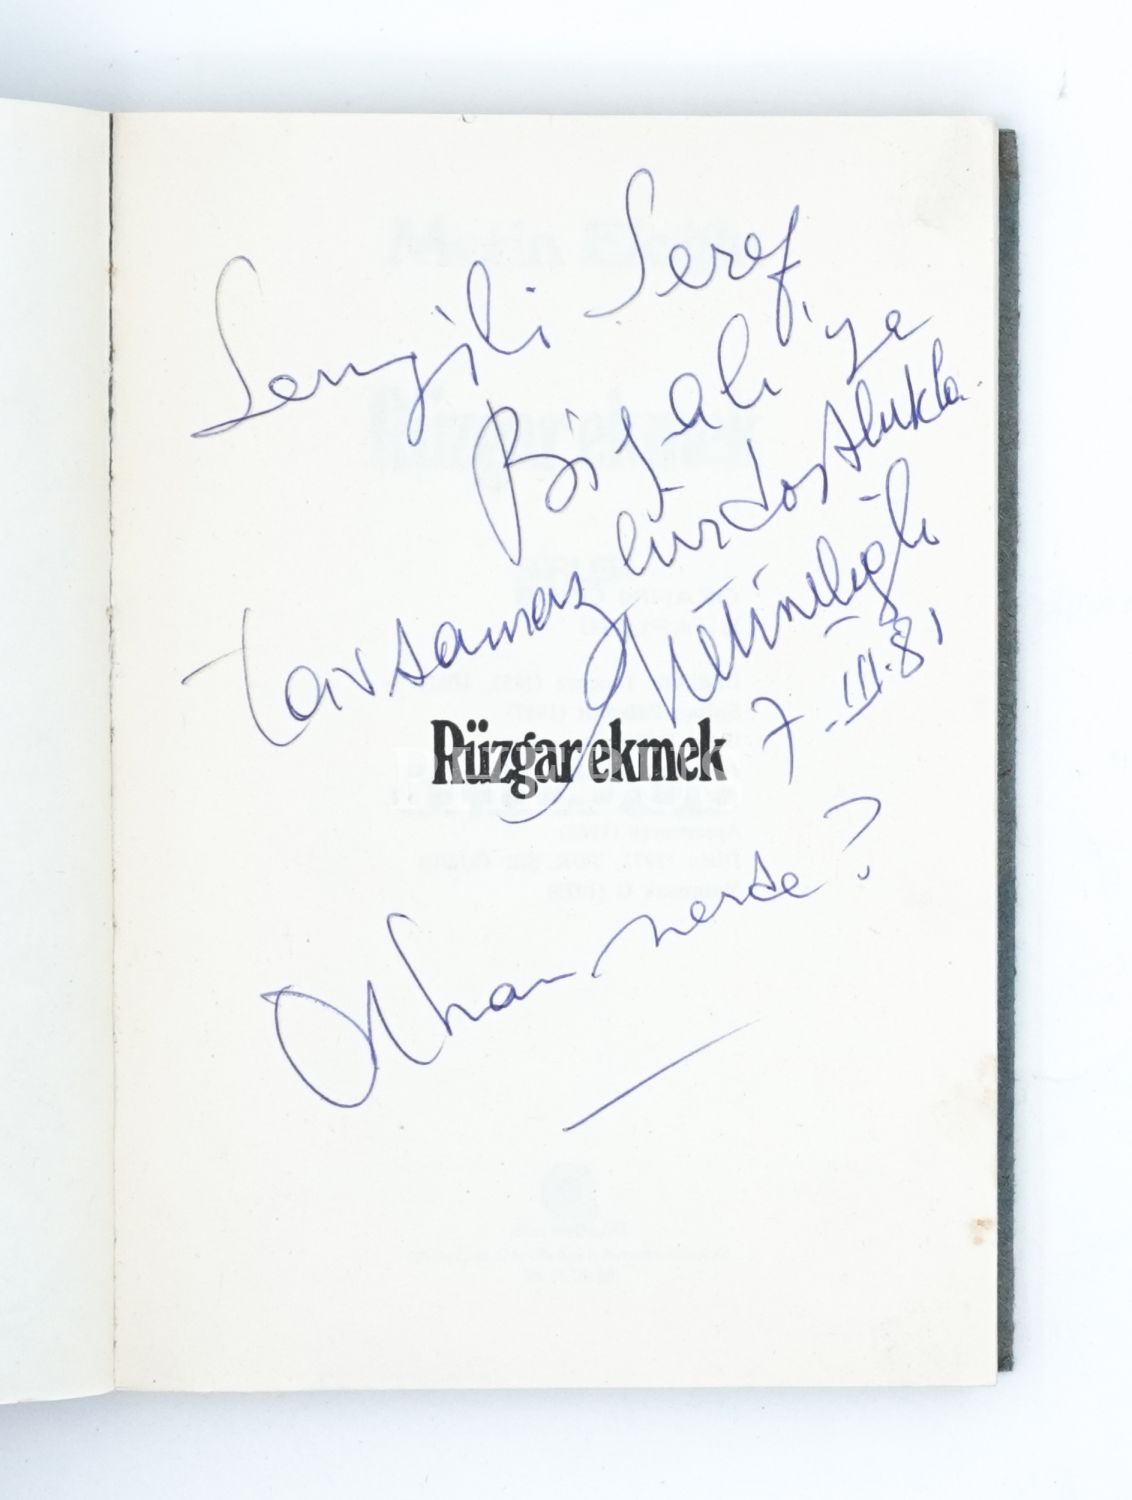 Sevgili Şeref
Birsel'e
tavsamaz bir dostlukla.
Metin Eloğlu
7.III.81
Rüzgar ekmek
Orhan nerde?